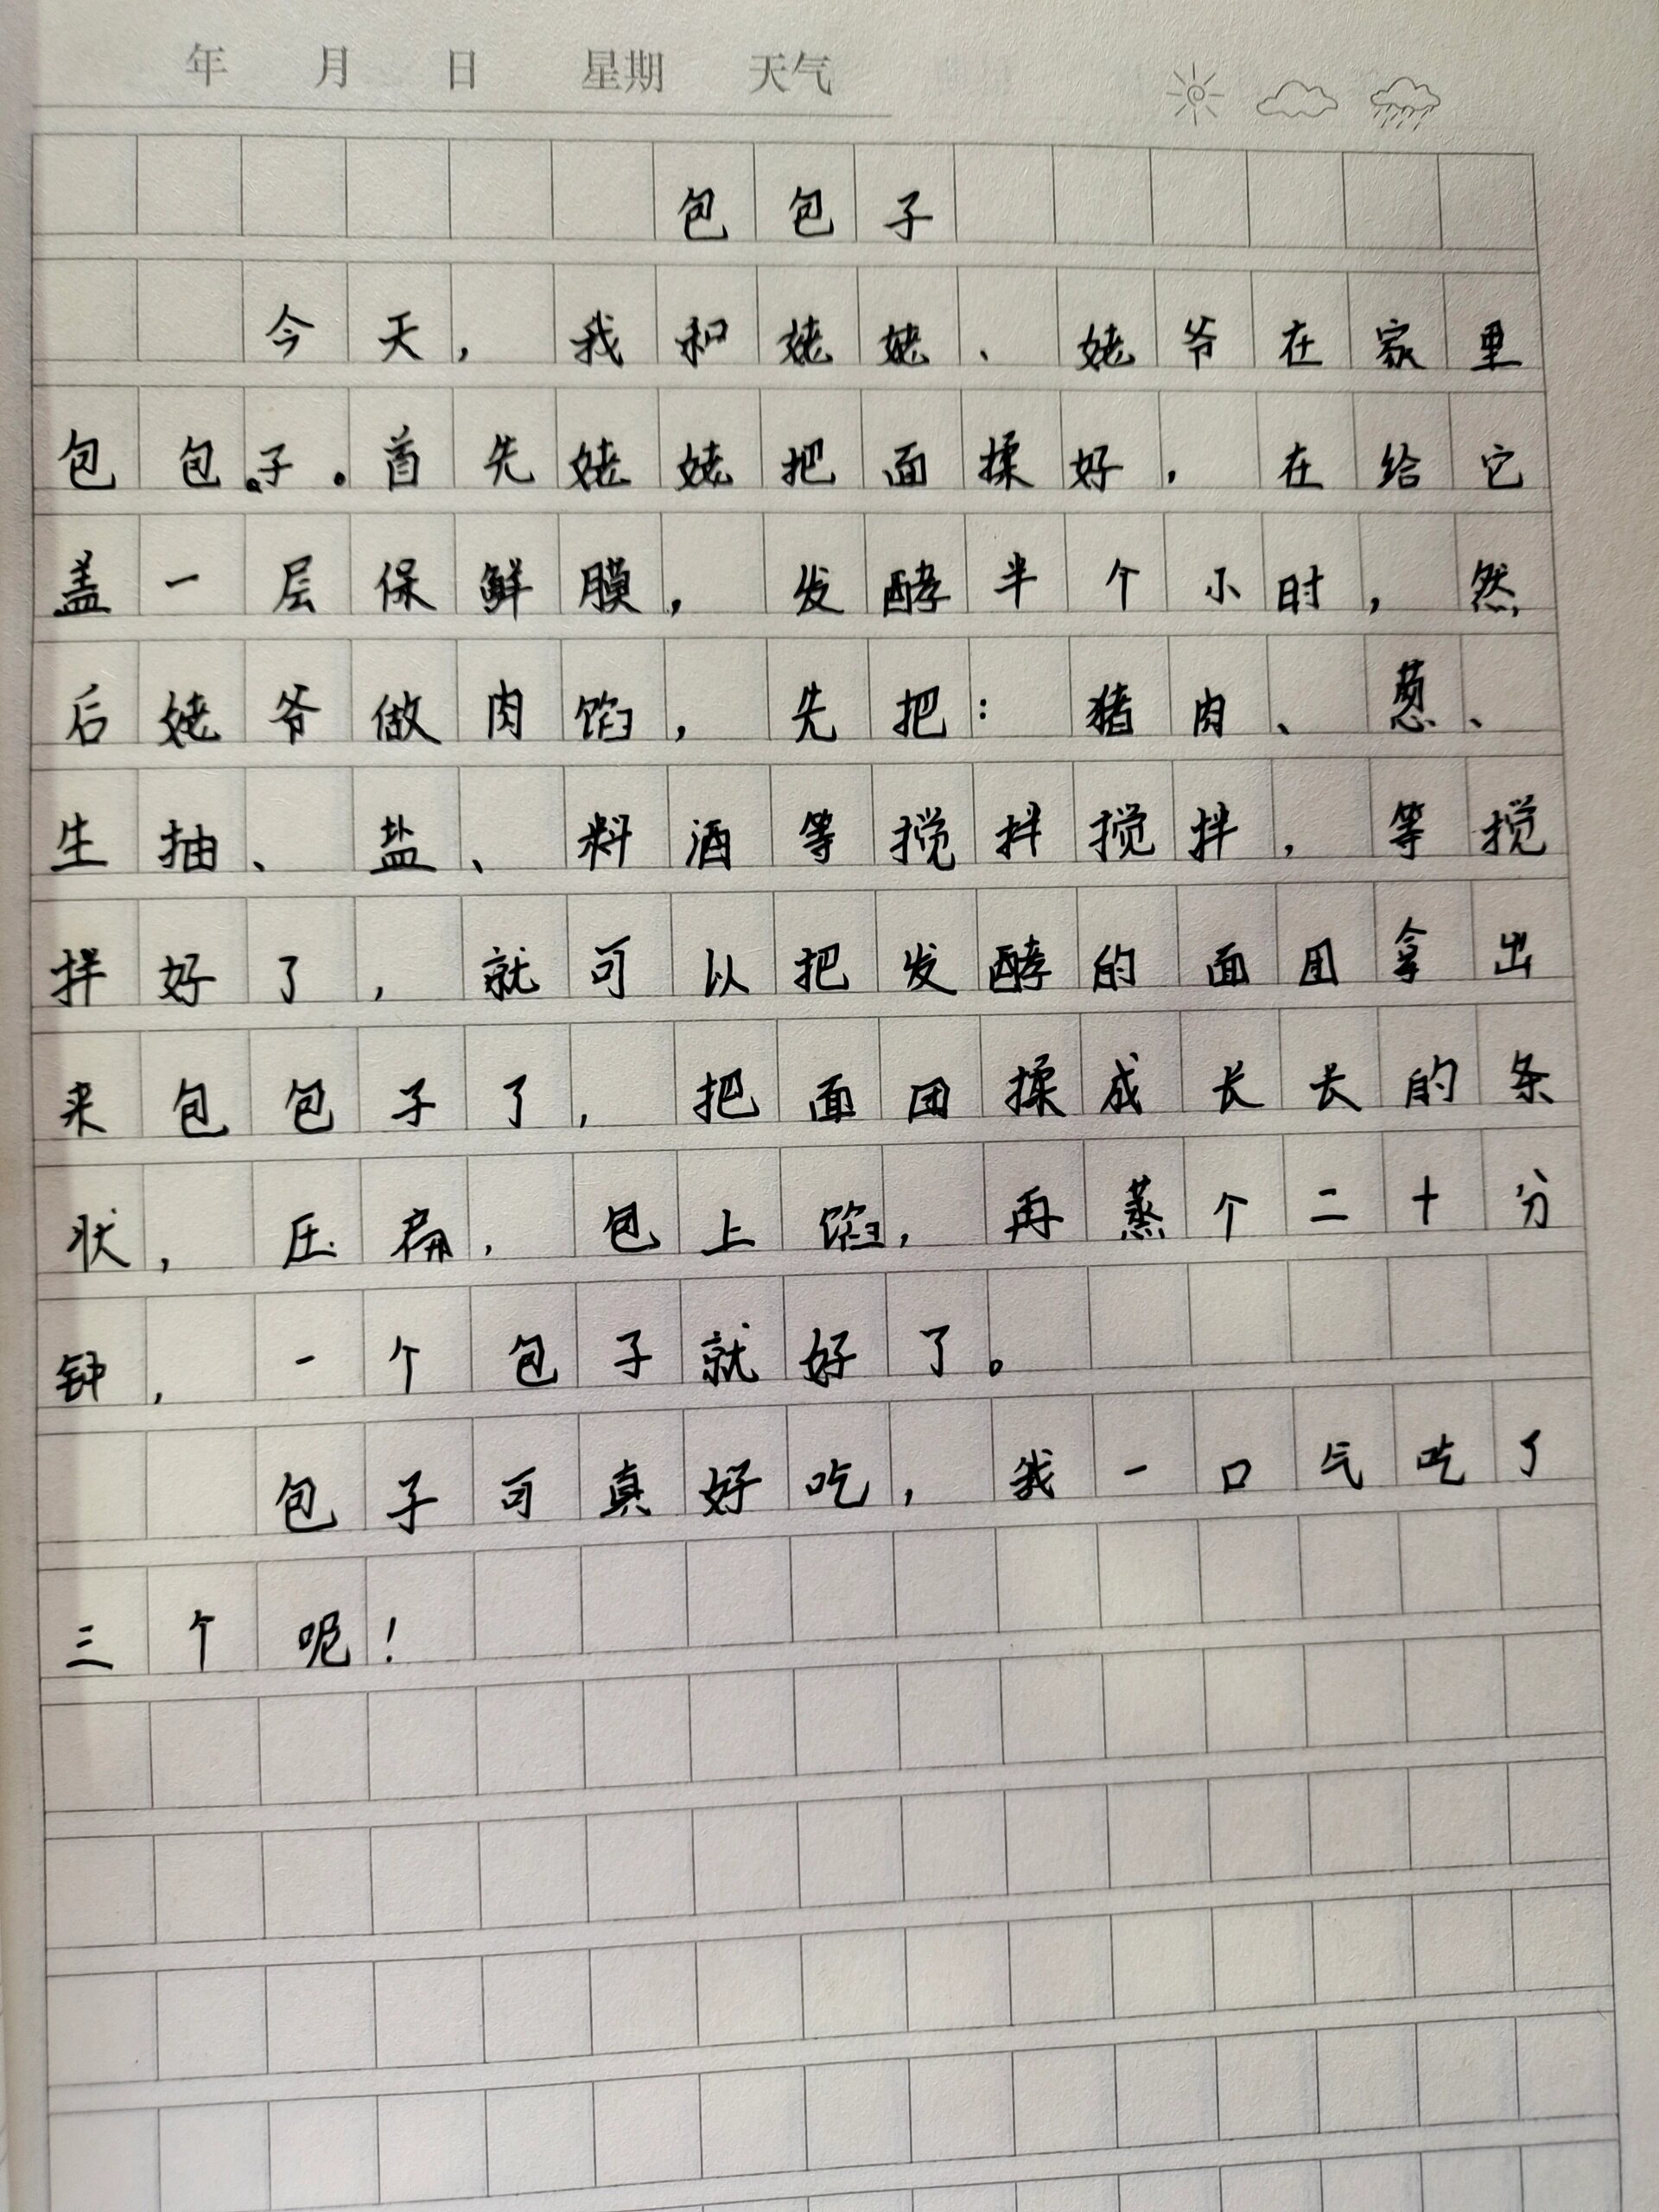 年 月 日 星期 天气
包包子
今天，我和姥姥、姥爷在家里
包包子.首先姥姥把面揉好，在给它
盖一层保鲜膜，发酵半个小时，然
后姥爷做肉馅，先把：猪肉、葱、
生抽、盐、料酒等搅拌搅拌，等搅
拌好了，就可以把发酵的面团拿出
来包包子了，把面团揉成长长的条
状，压扁，包上馅，再蒸个二十分
钟，一个包子就好了。
包子可真好吃，我一口气吃了
三个呢！